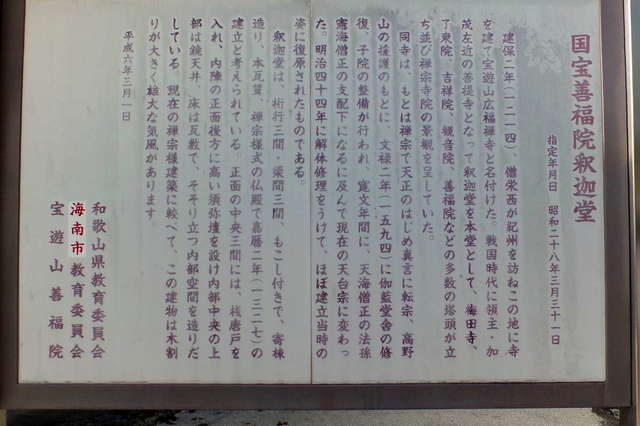 国宝善福院釈迦堂
指定年月日 昭和二十八年三月三十一日
建保二年(一二一四)、僧栄西が紀州を訪ねこの地に寺
を建て宝遊山広福禅寺と名付けた。戦国時代に領主・加
茂左近の菩提寺となって釈迦堂を本堂として、梅田寺、
了東院、吉祥院、観音院、善福院などの多数の塔頭が立
ち並び禅宗寺院の景観を呈していた。
同寺は、もとは禅宗で天正のはじめ真言に転宗、高野
山の援護のもとに、文禄二年(一五九四)に伽藍堂舎の修
復、子院の整備が行われ、寛文年間に、天海僧正の法孫
憲海僧正の支配下になるに及んで現在の天台宗に変わっ
た。明治四十四年に解体修理をうけて、ほぼ建立当時の
姿に復原されたものである。
釈迦堂は、桁行三間・梁間三間 もこし付きで、寄棟
造り、本瓦葺、禅宗様式の仏殿で嘉暦二年(一三二七)の
建立と考えられている。正面の中央三間には、桟唐戸を
入れ、内陣の正面後方に高い須弥壇を設け内部中央の上
部は鏡天井、床は瓦敷で、そそり立つ内部空間を造りだ
している。現在の禅宗様建築に較べて、この建物は木割
りが大きく雄大な気風があります。
平成六年三月一日
和歌山県教育委員会
海南市教育委員会
宝遊山善福院